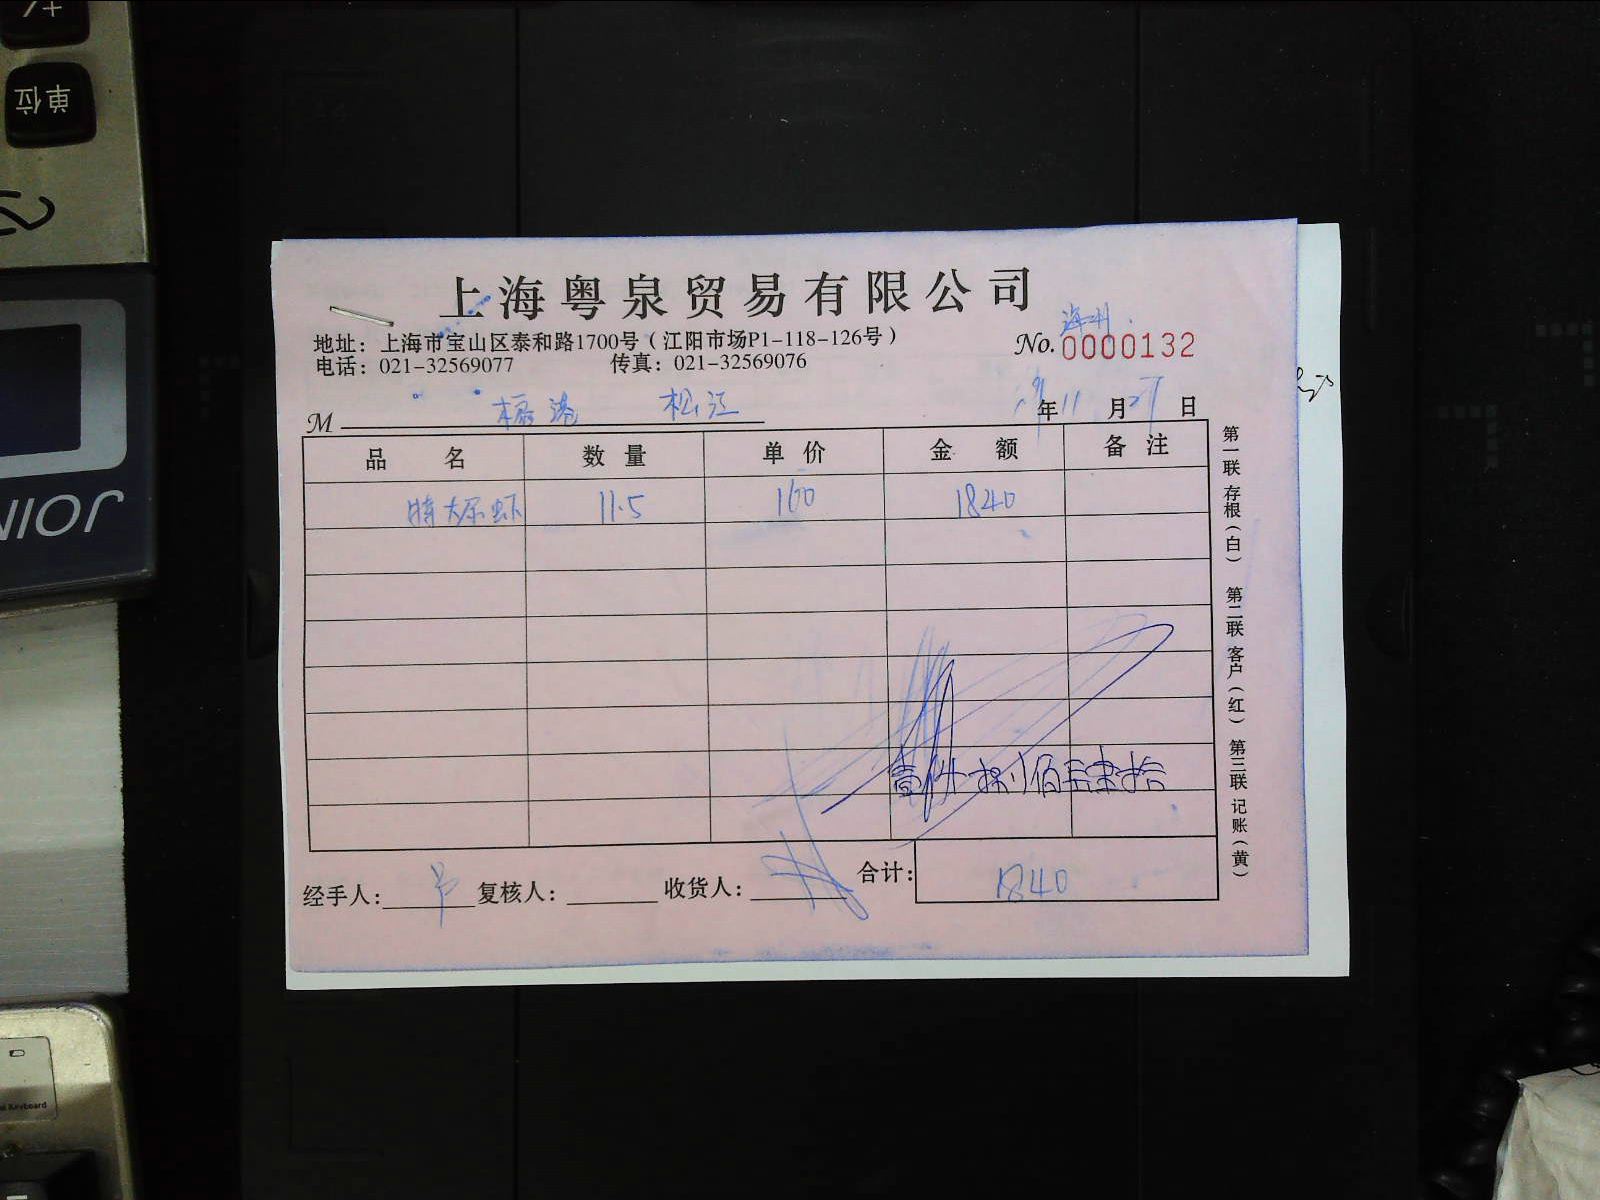 上海粤泉贸易有限公司
地址：上海市宝山区泰和路1700号（江阳市场P1-118-126号）
电话：021-32569077 传真：021-32569076
No. 0000132
M 松江
年11月27日
品名 数量 单价 金额 备注
特大尿虾 11.5 160 1840
壹仟捌佰肆拾
经手人： 复核人： 收货人： 合计： 1840
第一联 存根（白） 第二联 客户（红） 第三联 记账（黄）
单位
JOIN